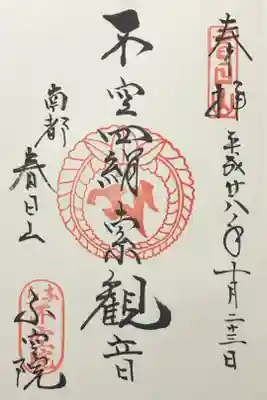 奉拝 平成廿八年十月二十三日
不空羂索観音
南都
春日山
不空院